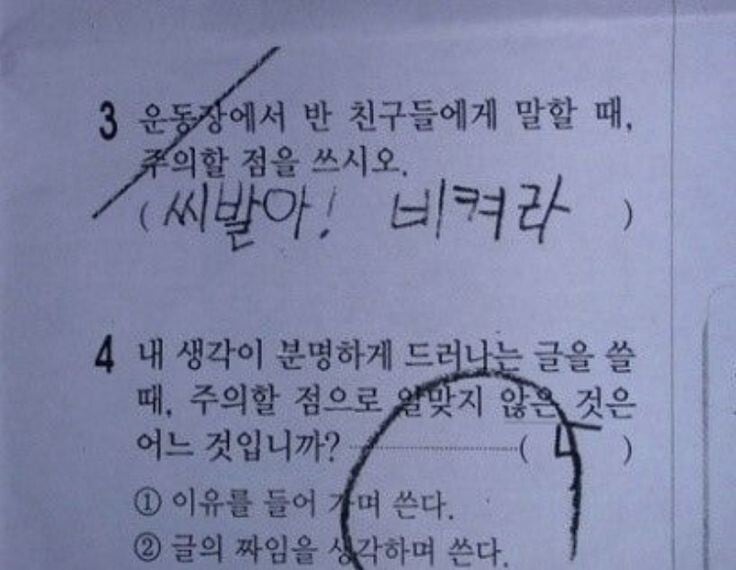 3 운동장에서 반 친구들에게 말할 때,
주의할 점을 쓰시오.
( 씨발아! 비켜라 )
4 내 생각이 분명하게 드러나는 글을 쓸
때, 주의할 점으로 알맞지 않은 것은
어느 것입니까? ( 5 )
① 이유를 들어 가며 쓴다.
② 글의 짜임을 생각하며 쓴다.